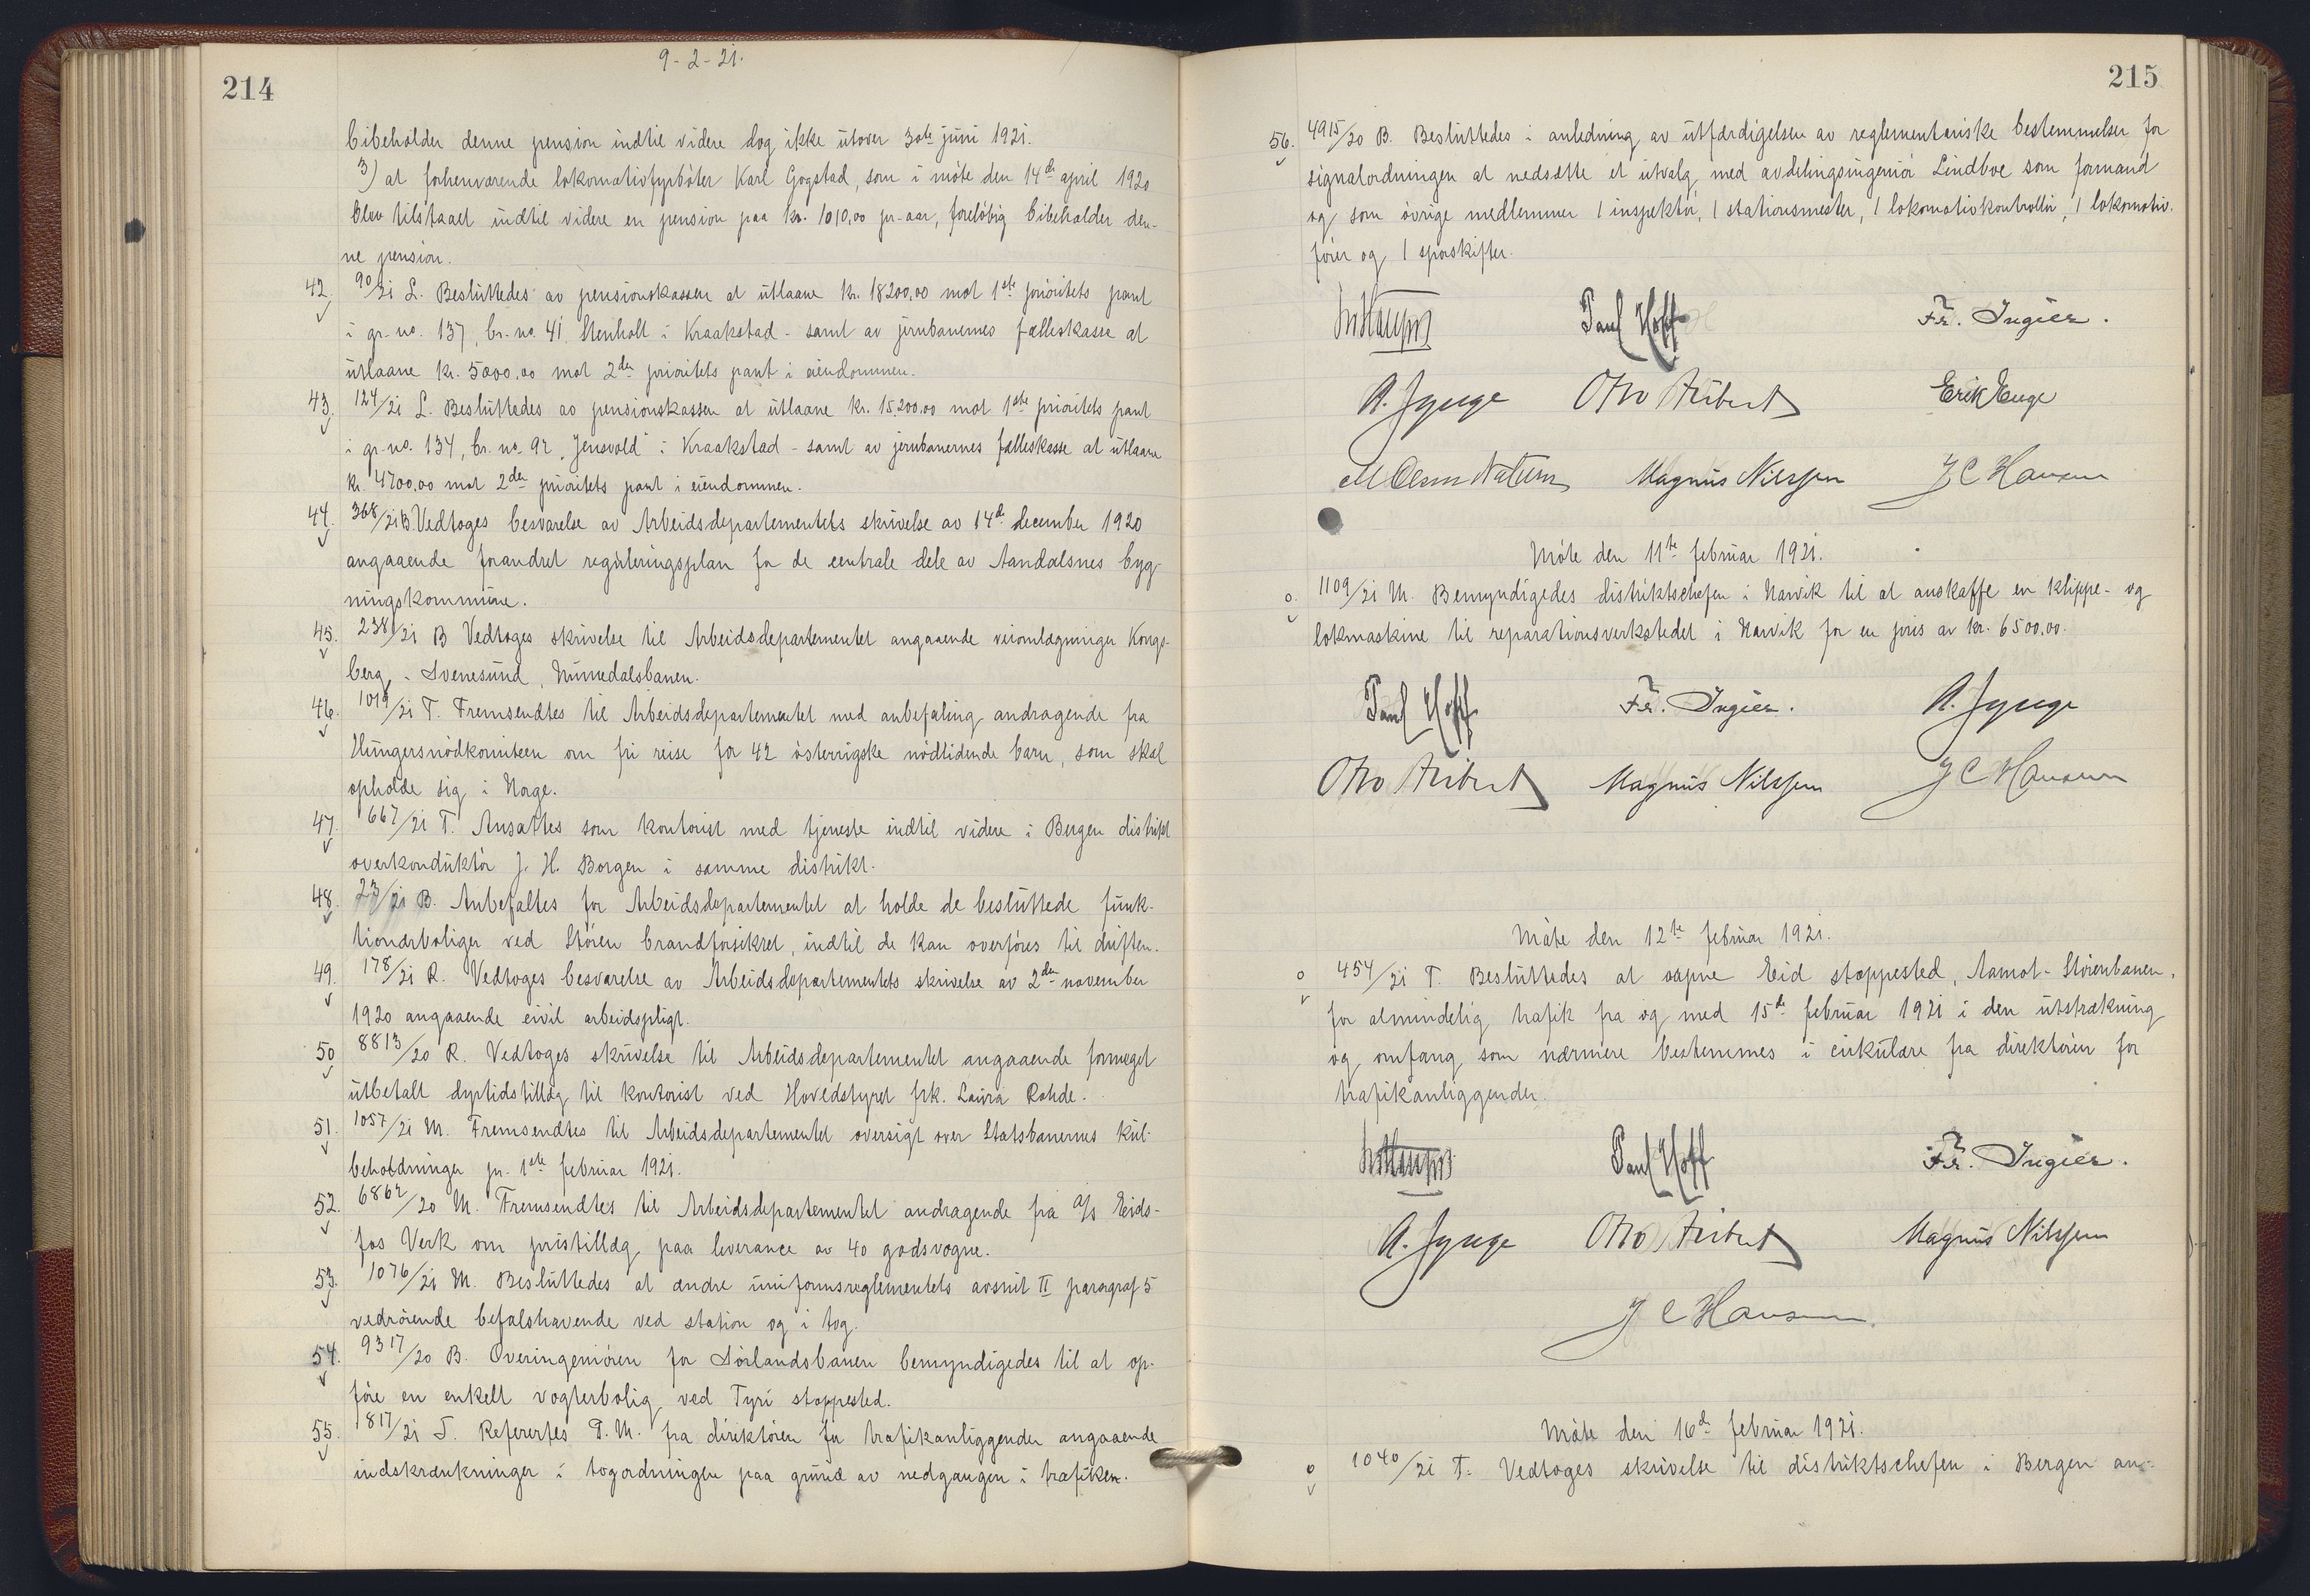 214
9-2-21.
bibeholder denne pension indtil videre dog ikke utover 30te juni 1921.
3) at forhenværende lokomotivfyrbøter Karl Gogstad, som i møte den 14de april 1920
blev tilstaaet indtil videre en pension paa kr. 1010,00 pr. aar, foreløbig bibeholder den-
ne pension.
42. 90/21 L. Besluttedes av pensionskassen at utlaane kr. 18200,00 mot 1ste prioritets pant
i gr. no. 137, br. no. 41 Stenholt i Kraakstad - samt av jernbanernes fælleskasse at
utlaane kr. 5000,00 mot 2den prioritets pant i eiendommen.
43. 124/21 L. Besluttedes av pensionskassen at utlaane kr. 15,200,00 mot 1ste prioritets pant
i gr. no. 134, br. no. 92 „Jensvold" i Kraakstad - samt av jernbanernes fælleskasse at utlaane
kr. 4700,00 mot 2den prioritets pant i eiendommen.
44. 368/21 B. Vedtoges besvarelse av Arbeidsdepartementets skrivelse av 14de december 1920
angaaende forandret reguleringsplan for de centrale dele av Aandalsnes byg-
ningskommune.
45. 238/21 B Vedtoges skrivelse til Arbeidsdepartementet angaaende veiomlægninger Kongs-
berg - Svenesund, Numedalsbanen.
46. 1019/21 T. Fremsendtes til Arbeidsdepartementet med anbefaling andragende fra
Hungersnødkomiteen om fri reise for 42 østerrigske nødlidende barn, som skal
opholde sig i Norge.
47. 1667/21 T. Ansattes som kontorist med tjeneste indtil videre i Bergen distrikt
overkonduktør J. H. Borgen i samme distrikt.
48. 23/21 B. Anbefaltes for Arbeidsdepartementet at holde de besluttede funk-
tionærboliger ved Støren brandforsikret, indtil de kan overføres til driften.
49. 178/21 R. Vedtoges besvarelse av Arbeidsdepartementets skrivelse av 2den november
1920 angaaende civil arbeidspligt.
50. 8813/20 R. Vedtoges skrivelse til Arbeidsdepartementet angaaende formeget
utbetalt dyrtidstillæg til kontorist ved Hovedstyret frk. Laura Rohde.
51. 1057/21 M. Fremsendtes til Arbeidsdepartementet oversigt over Statsbanernes kul-
beholdninger pr. 1ste februar 1921.
52. 6862/20 M. Fremsendtes til Arbeidsdepartementet andragende fra A/S Eids-
fos Verk om pristillæg paa leverance av 40 godsvogne.
53. 1076/21 M. Besluttedes at ændre uniformsreglementets avsnit II paragraf 5
vedrørende befalshavende ved station og i tog.
54. 9317/20 B. Overingeniøren for Sørlandsbanen bemyndigedes til at op-
føre en enkelt vogterbolig ved Tyri stoppested.
55. 1817/21 T. Refererdes P.M. fra direktøren for trafikanliggender angaaende
indskrænkninger i togordningen paa grund av nedgangen i trafiken.
215
56. 4915/20 B. Besluttedes i anledning av utfærdigelsen av reglementariske bestemmelser for
signalordningen at nedsætte et utvalg med avdelingsingeniør Lindboe som formand
og som øvrige medlemmer 1 inspektør, 1 stationsmester, 1 lokomotivkontrollør, 1 lokomotiv-
fører og 1 sporskifter.
Paul Hoff Fr. Ingier.
Otto Aubert
Magnus Nilssen J C Hansen
Møte den 11te februar 1921.
o. 1109/21 M. Bemyndigedes distriktschefen i Narvik til at anskaffe en klippe- og
lokmaskine til reparationsverkstedet i Narvik for en pris av kr. 6500,00.
Paul Hoff Fr. Ingier.
Otto Aubert Magnus Nilssen J C Hansen
Møte den 12te februar 1921.
o 454/21 T. Besluttedes at aapne Eid stoppested, Aamot-Størenbanen,
for almindelig trafik fra og med 15de februar 1921 i den utstrækning
og omfang som nærmere bestemmes i cirkulære fra direktøren for
trafikanliggender.
Paul Hoff Fr. Ingier.
Otto Aubert Magnus Nilssen
J C Hansen
Møte den 16de februar 1921.
o 1040/21 T. Vedtoges skrivelse til distriktschefen i Bergen an-